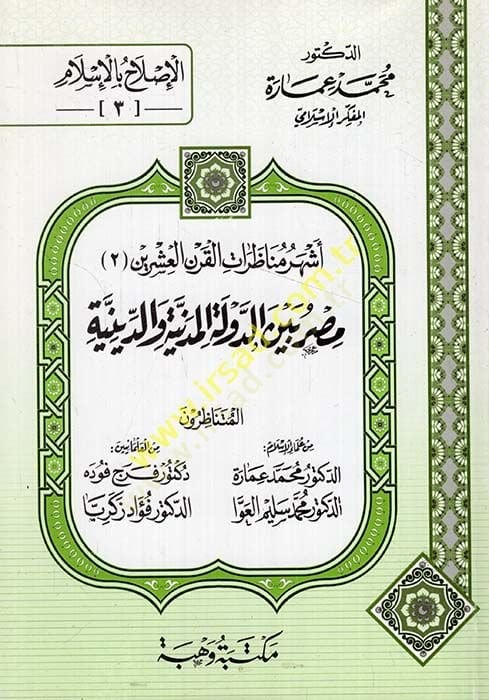 الدكتور
محمد عمارة
المفكر الإسلامي
الإصلاح بالإسلام
[٣]
أشهر مناظرات القرن العشرين (٢)
مصر بين الدولة المدنية والدينية
المتناظرون
من علماء الإسلام:
الدكتور محمد عمارة
الدكتور محمد سليم العوا
من العلمانيين:
دكتور فرج فوده
الدكتور فؤاد زكريا
مكتبة وهبة
www.irsad.com.tr